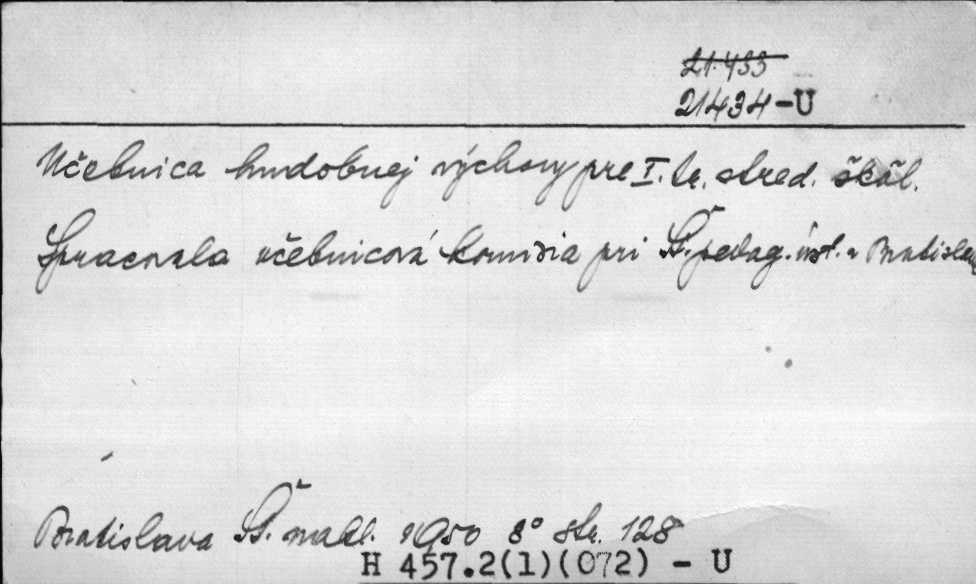 21.433
21434-U
Učebnica hudobnej výchovy pre I. tr. stred. škôl.
Spracovala učebnicová komisia pri Št. pedag. úst. v Bratislave
Bratislava Št. nakl. 1950 8° str. 128
H 457.2(1)(072) - U